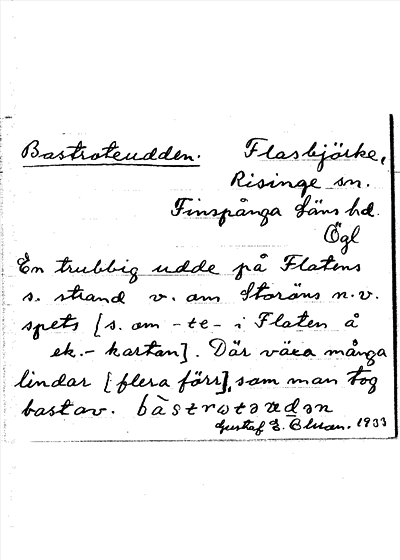 Bastroteudden. Flasbjörke,
Risinge sn.
Finspånga läns hd.
Ögl
En trubbig udde på Flatens
s. strand v. om Storöns n.v.
spets [s. om -te- i Flaten å
ek.- kartan]. Där växa många
lindar [flera förr], som man tog
bast av.
Gustaf E. 1933